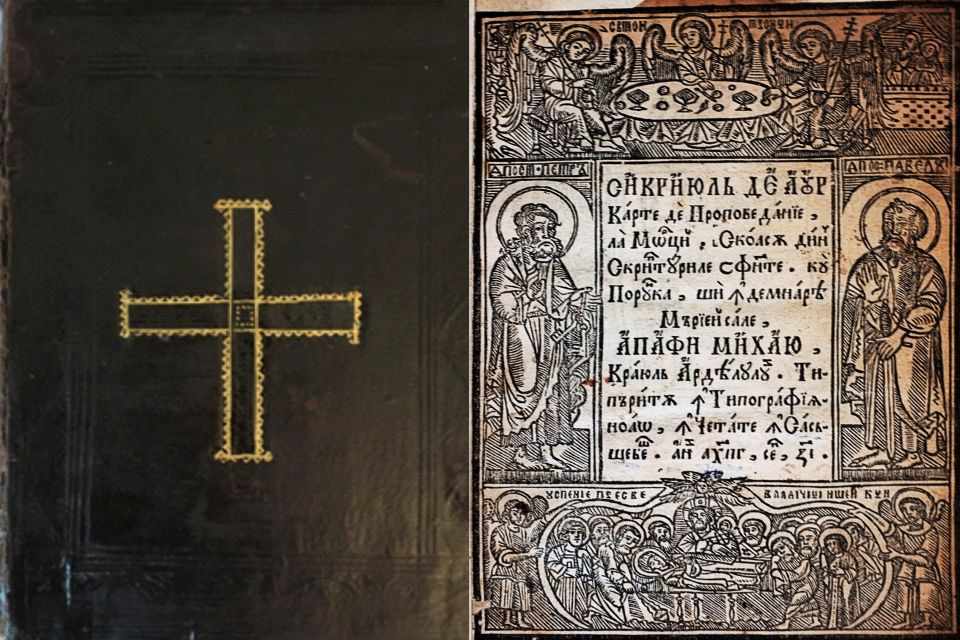 СВѦТОИ ТРОИЦИ
АПОС: ПЕТРЪ
АПОС: ПАВЕЛЪ
СИ́КРИ́ЮЛЬ ДЄ А́ꙊР
Ка́рте дѐ Пропове́данїе,
ла̀ Мѡ́рцй, Ско́лсѫ дин
Скриптꙋ́риле Сфи́нте. кꙋ̀
Пору́нка, ши ꙟдемна́рѣ
Мърїей са́ле,
А́ПА́ФИ МИХА́Ю,
Кра́юль А҆рдѣ́лꙋлꙋй. Ти-
пъри́тѫ ꙟ Типогра́фїѧ-
ноа́ѡ, ꙟ Четáте ꙟ Са́сь-
щебеш. а҆н҃ ахпг, се, зі.
УСПЕНІЕ ПРЕСВЕ